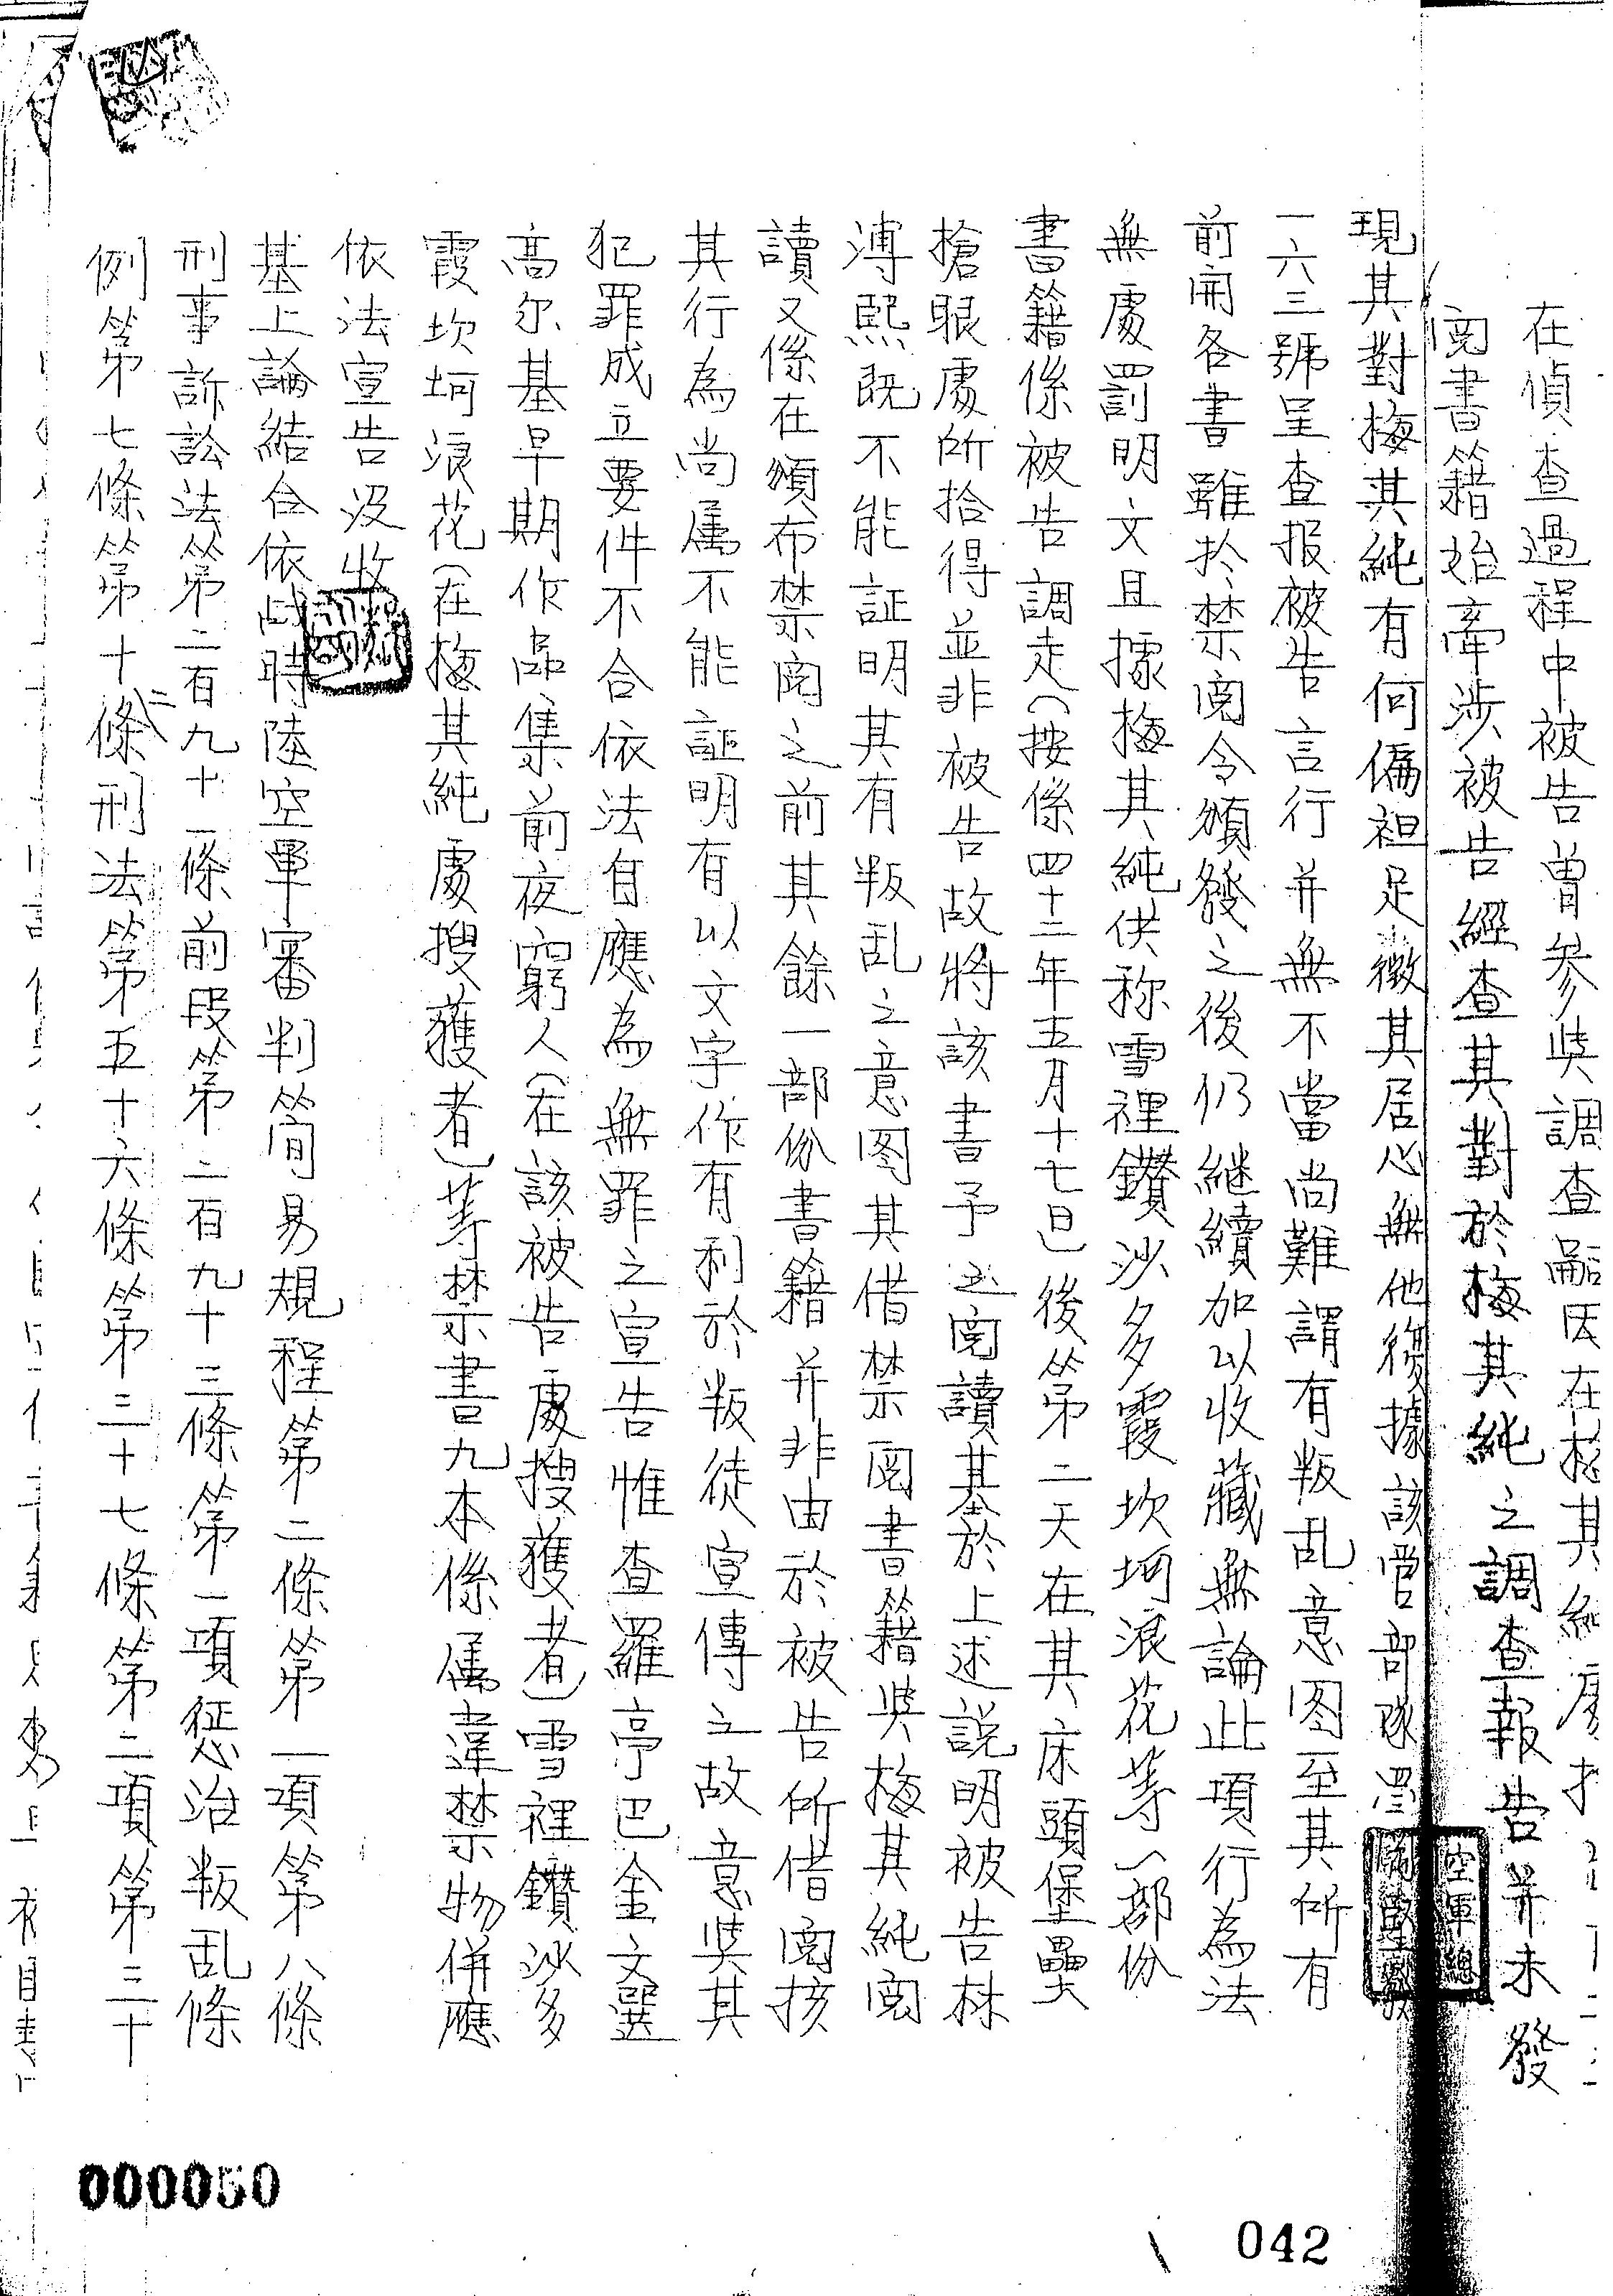 在偵查過程中被告曾參與調查嗣因在梅其純處
閱書籍始牽涉被告經查其對於梅其純之調查報告并未發
現其對梅其純有何偏袒足徵其居心無他復據該管部隊
一六三號呈查报被告言行并無不當尚難謂有叛乱意图至其所有
前開各書雖於禁閱令頒發之後仍继續加以收藏無論此項行為法
無處罰明文且據梅其純供称雪裡鑽沙多霞坎坷浪花等一部份
書籍係被告調走(按係四十二年五月十七日)後第二天在其床頭堡壘
槍眼處所拾得並非被告故將該書予之閱讀基於上述説明被告林
溥熙既不能証明其有叛乱之意图其借禁閱書籍與梅其純閱
讀又係在頒布禁閱之前其餘一部份書籍并非由於被告所借閱核
其行為尚属不能証明有以文字作有利於叛徒宣傳之故意與其
犯罪成立要件不合依法自應為無罪之宣告惟查羅亭巴金文選
高尔基早期作品集前夜窮人(在該被告處搜獲者)雪裡鑽沙多
霞坎坷浪花(在梅其純處搜獲者)等禁書九本係属違禁物併應
依法宣告没收
基上論結合依战時陸空軍審判简易規程第二條第一項第八條
刑事訴訟法第二百九十一條前段第二百九十三條第一項惩治叛乱條
例第七條第十二條刑法第五十六條第三十七條第二項第三十
空軍總
000050
042